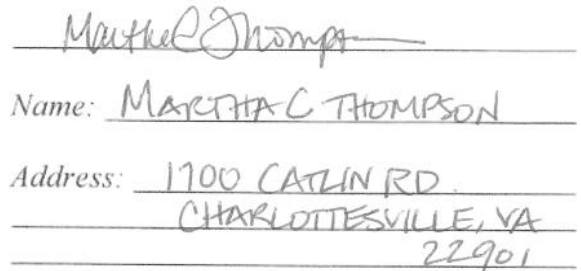 Martha C Thompson
Name: MARTHA C THOMPSON
Address: 1700 CATLIN RD.
CHARLOTTESVILLE, VA
22901